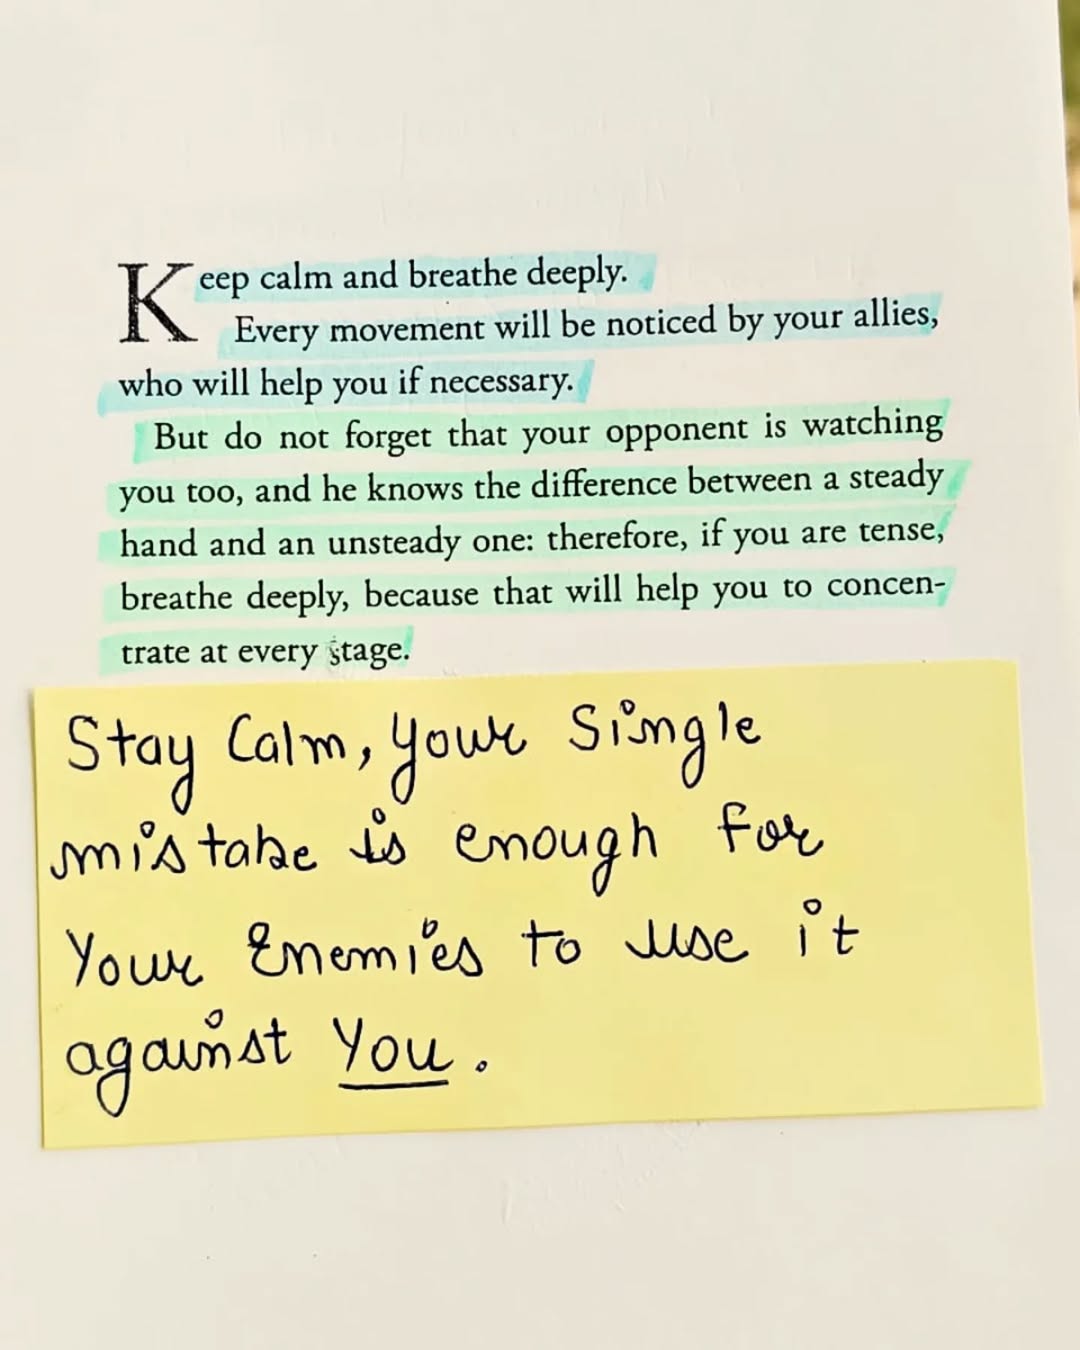 Keep calm and breathe deeply.
Every movement will be noticed by your allies,
who will help you if necessary.
But do not forget that your opponent is watching
you too, and he knows the difference between a steady
hand and an unsteady one: therefore, if you are tense,
breathe deeply, because that will help you to concen-
trate at every stage.
Stay Calm, your Single
mistake is enough for
Your Enemies to use it
against You.